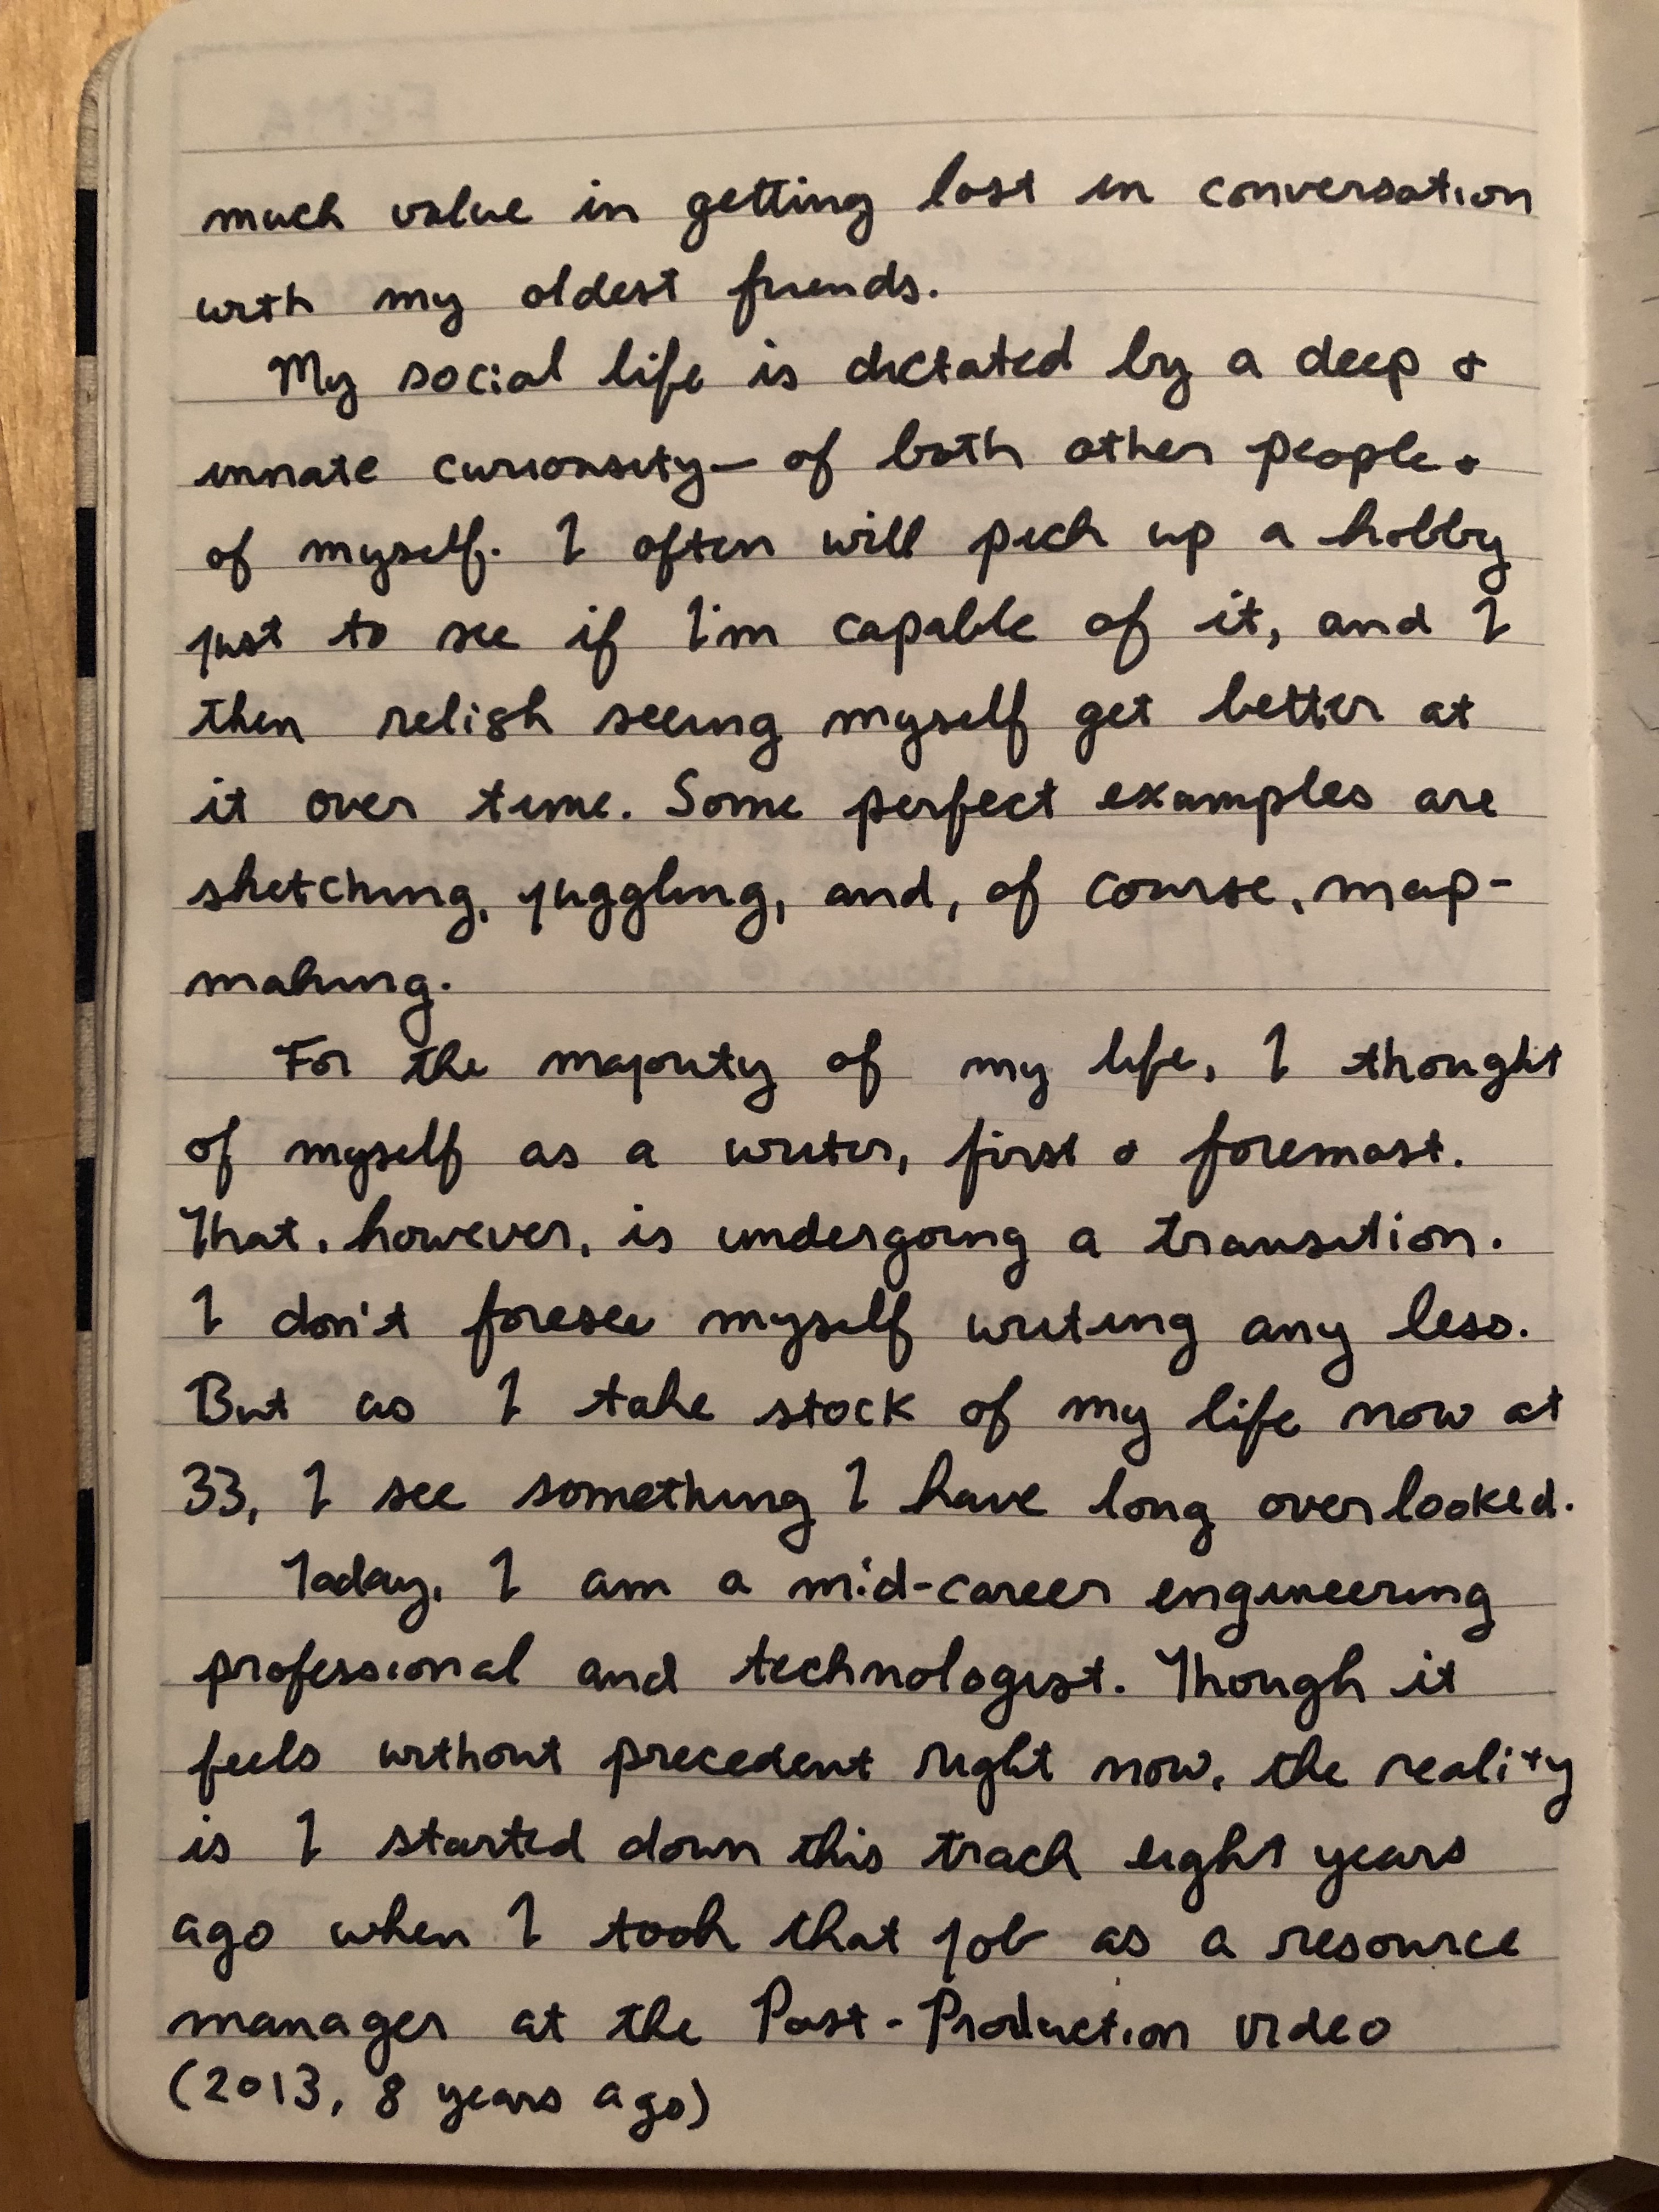 much value in getting lost in conversation
with my oldest friends.
My social life is dictated by a deep &
innate curiousity— of both other people &
of myself. I often will pick up a hobby
just to see if I'm capable of it, and I
then relish seeing myself get better at
it over time. Some perfect examples are
sketching, juggling, and, of course, map-
making.
For the majority of my life, I thought
of myself as a writer, first & foremost.
That, however, is undergoing a transition.
I don't foresee myself writing any less.
But as I take stock of my life now at
33, I see something I have long overlooked.
Today, I am a mid-career engineering
professional and technologist. Though it
feels without precedent right now, the reality
is I started down this track eight years
ago when I took that job as a resource
manager at the Post-Production video
(2013, 8 years ago)